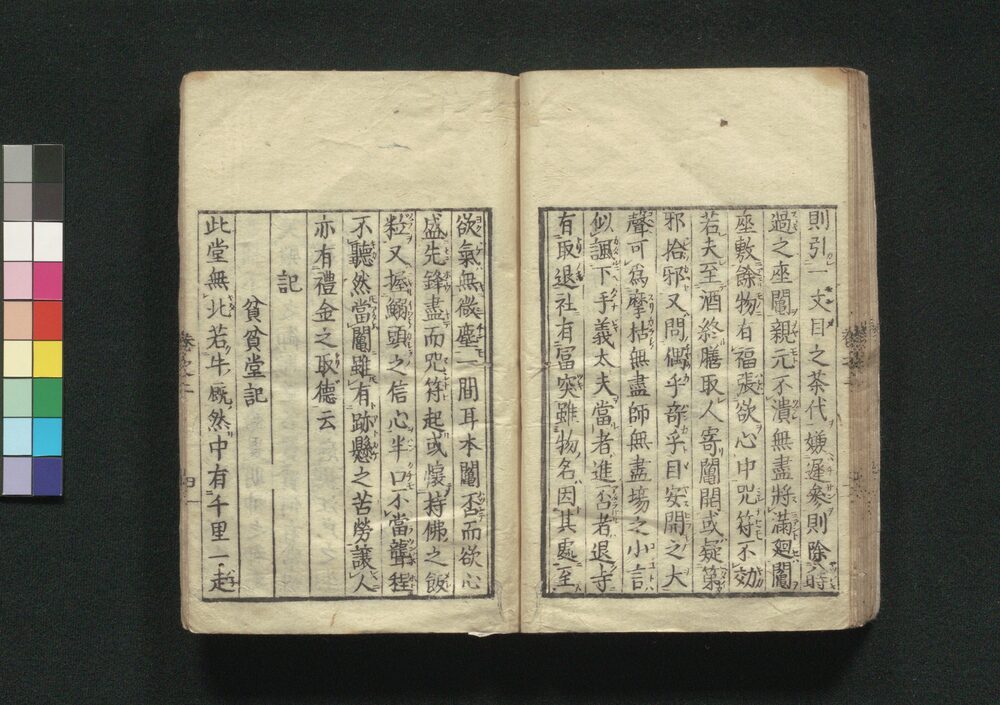 則引一文目之茶代嫌遅参則除時
過之座鬮親元不潰無盡將滿廻鬮
座敷餘物有福張欲心中咒符不効
若夫至酒終膳取人寄鬮開或疑第
邪拾邪又問偶乎奇乎目安開之大
聲可為摩枯無盡師無盡場之小言
似諷下手義太夫當者進否者退寺
有取退社有冨突雖物名因其處至
欲氣無微塵一間耳本鬮否而欲心
盛先鋒盡而咒符起或懐持佛之飯
粒又握鰯頭之信心半口不當聾程
不聽然當鬮雖有跡懸之苦勞譲人
亦有禮金之取德云
記
貧貧堂記
此堂無北若牛厩然中有千里一起